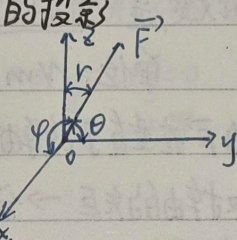 的投影
z
F
r
φ
θ
o
y
x